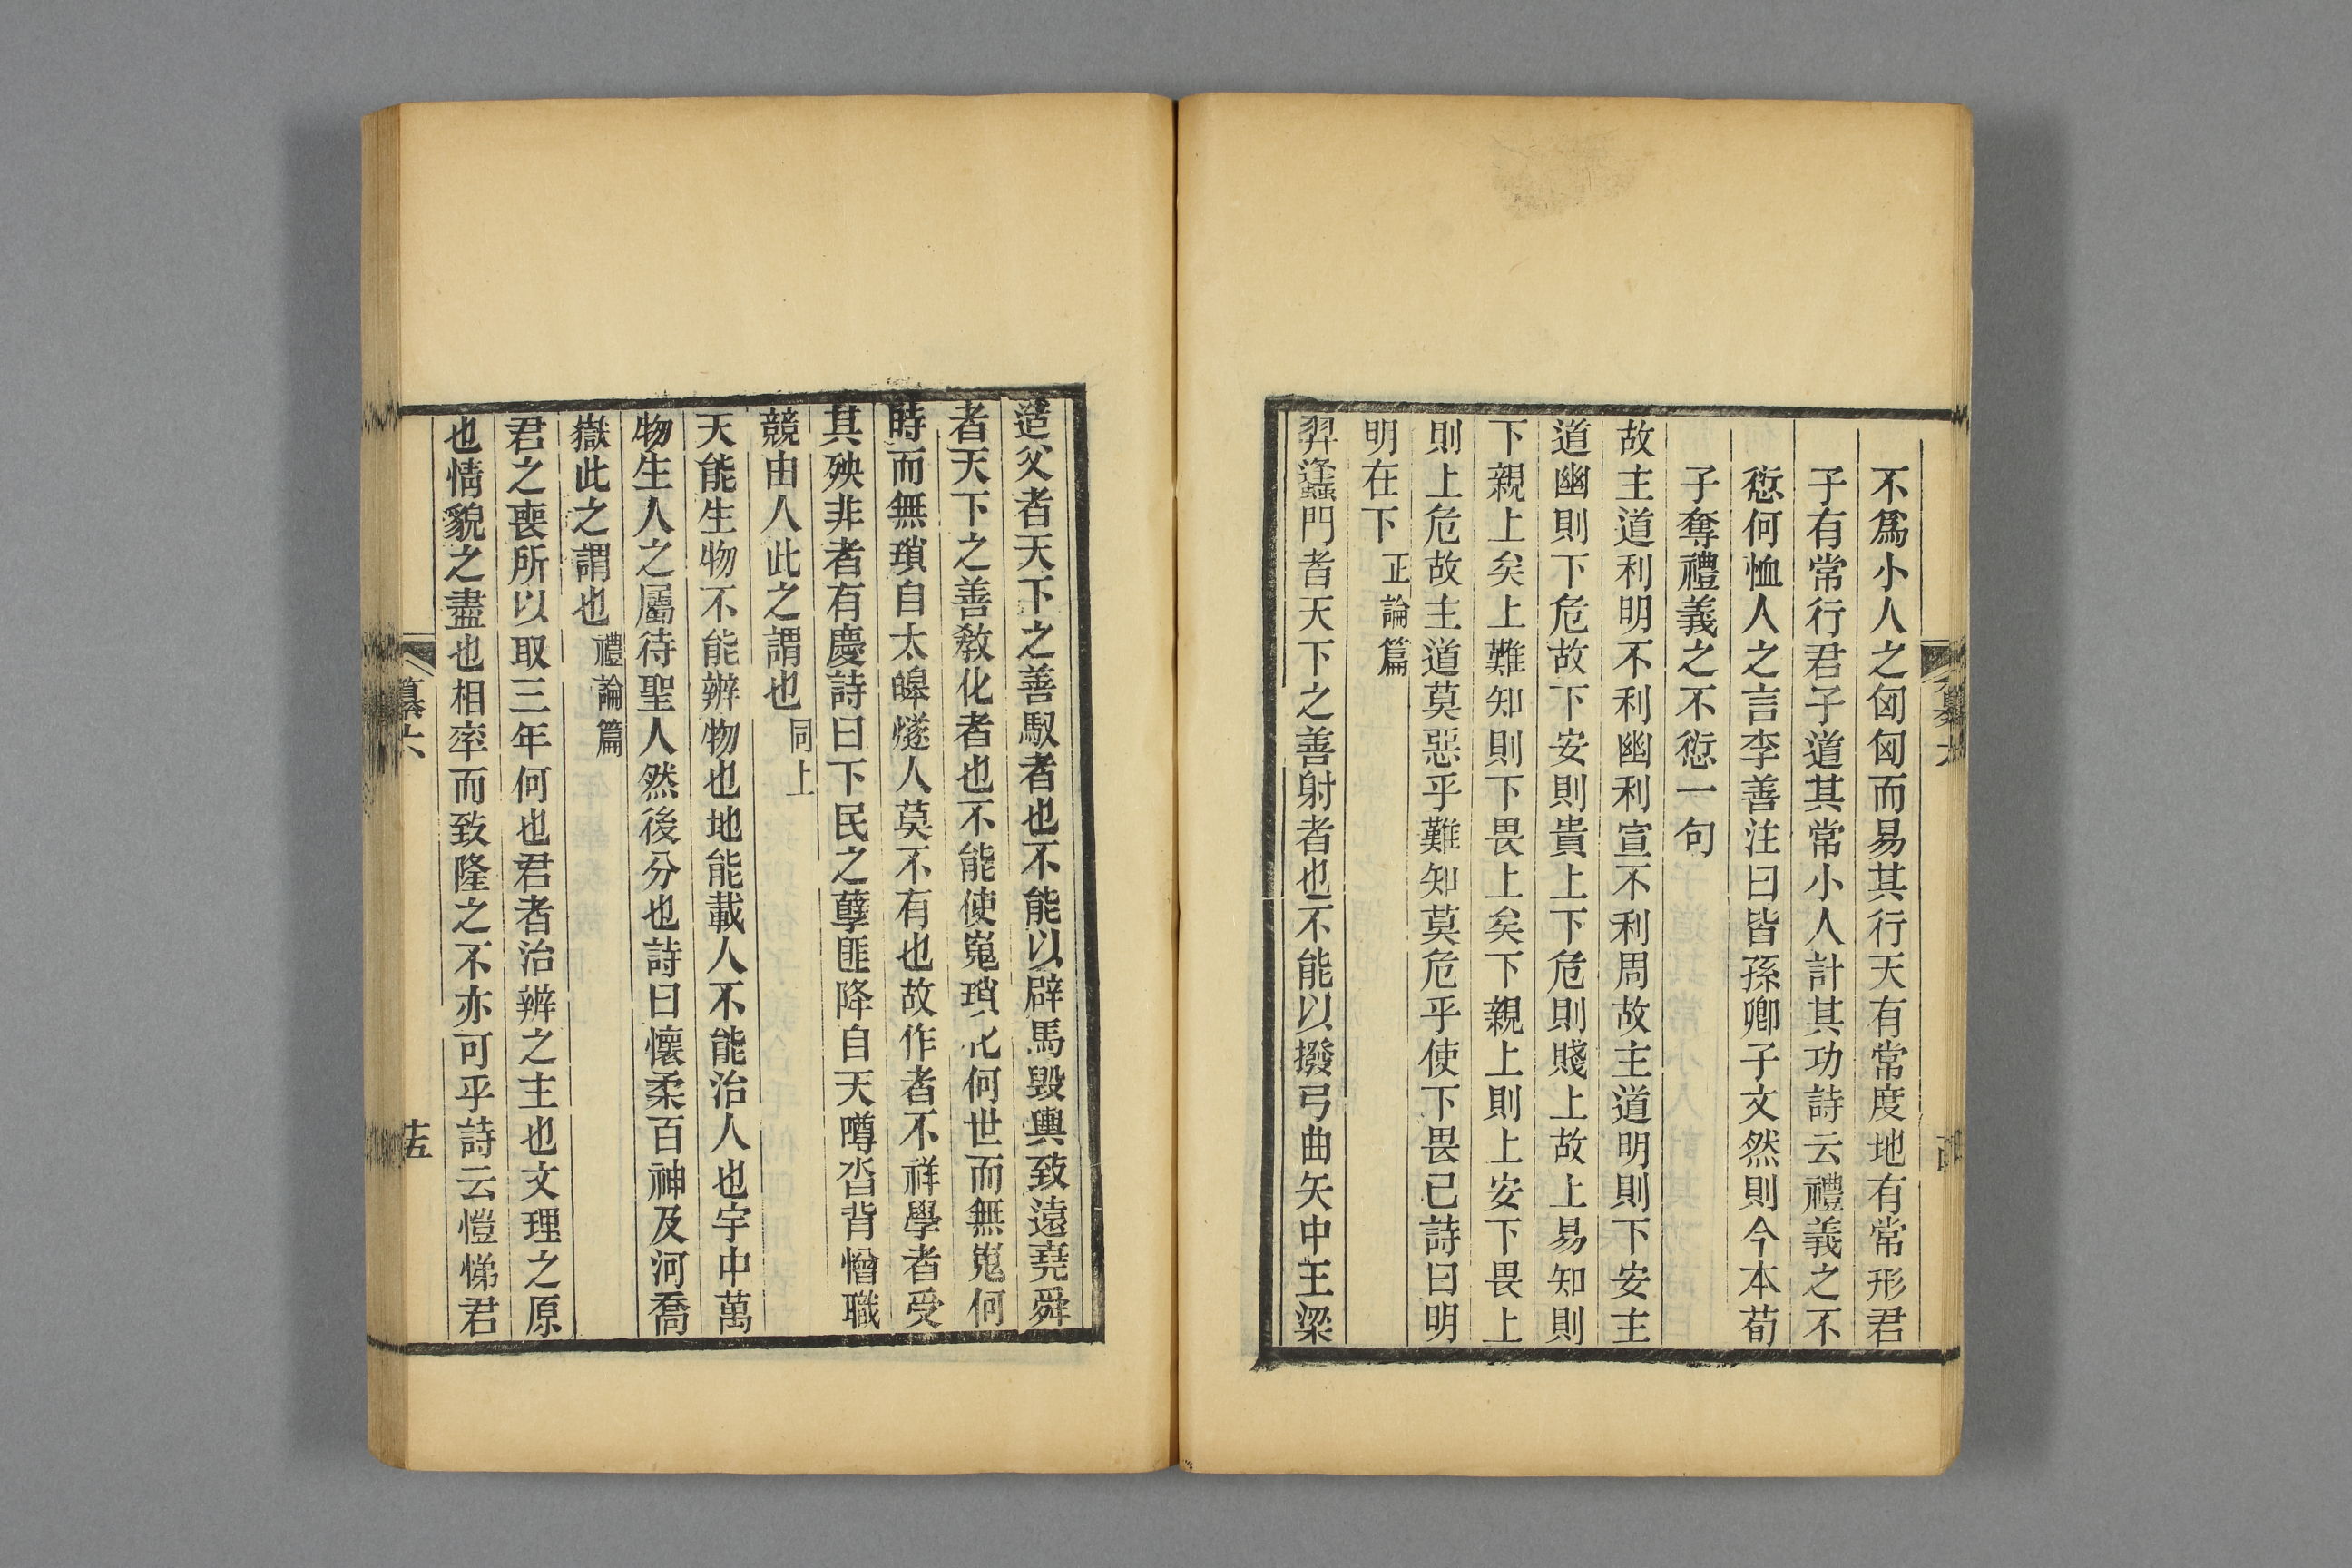 不爲小人之匈匈而易其行天有常度地有常形君
子有常行君子道其常小人計其功詩云禮義之不
愆何恤人之言李善注曰皆孫卿子文然則今本荀
子奪禮義之不愆一句
故主道利明不利幽利宣不利周故主道明則下安主
道幽則下危故下安則貴上下危則賤上故上易知則
下親上矣上難知則下畏上矣下親上則上安下畏上
則上危故主道莫惡乎難知莫危乎使下畏己詩曰明
明在下 正論篇
羿蠭門者天下之善射者也不能以撥弓曲矢中王梁
造父者天下之善馭者也不能以辟馬毀輿致遠堯舜
者天下之善敎化者也不能使嵬瑣化何世而無嵬何
時而無瑣自太皞燧人莫不有也故作者不祥學者受
其殃非者有慶詩曰下民之孽匪降自天噂沓背憎職
競由人此之謂也 同上
天能生物不能辨物也地能載人不能治人也宇中萬
物生人之屬待聖人然後分也詩曰懷柔百神及河喬
嶽此之謂也 禮論篇
君之喪所以取三年何也君者治辨之主也文理之原
也情貌之盡也相率而致隆之不亦可乎詩云愷悌君
纂六